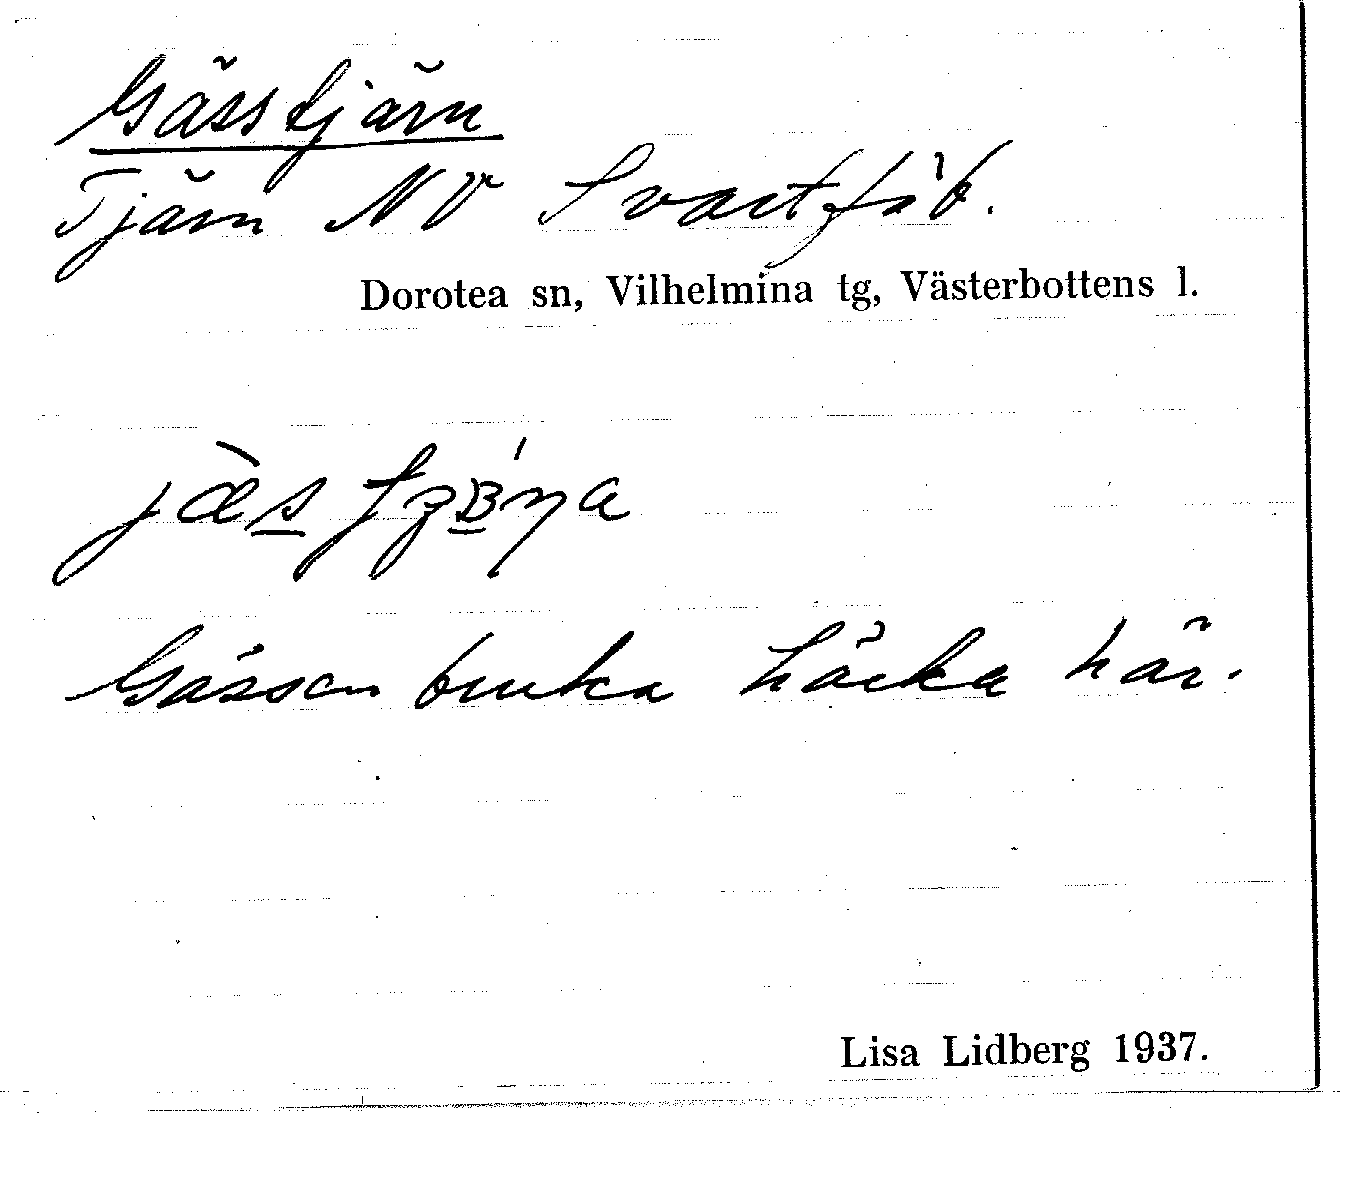 Gässtjärn
Tjärn NV Svart
Dorotea sn, Vilhelmina tg, Västerbottens l.
Gässen bruka häcka här.
Lisa Lidberg 1937.